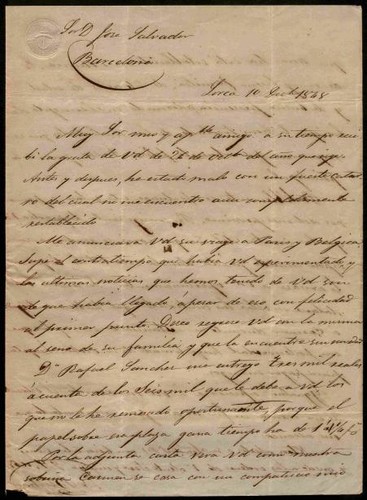 Sor D. José Salvador
Barcelona
Lorca 10 1858
Muy Sor mio y apble amigo a su tiempo reci
bi la grata de Vd de 26 de del año que rige
Antes y despues, he estado malo con un fuerte catar
ro del cual no me encuentro aun completamente
restablecido
Me anunciava Vd su viage a Paris y Belgica
Supe el contratiempo que habia Vd esperimentado, y
las ultimas noticias que hemos tenido de Vd son
de que habia llegado, a pesar de eso, con felicidad
al primer punto. Deseo regrese Vd con la misma
al seno de su familia y que la encuentre sin novedad
Dn Rafael Sanchez me entregó Tres mil reales
á cuenta de los Seis mil que le debo a Vd los
que no le he remesado oportunamente, porque el
papel sobre esa plaza gana tiempo ha de 1 á 1½ %
Por la adjunta carta vera Vd como nuestra
sobrina Carmen se casa con un compatricio mio